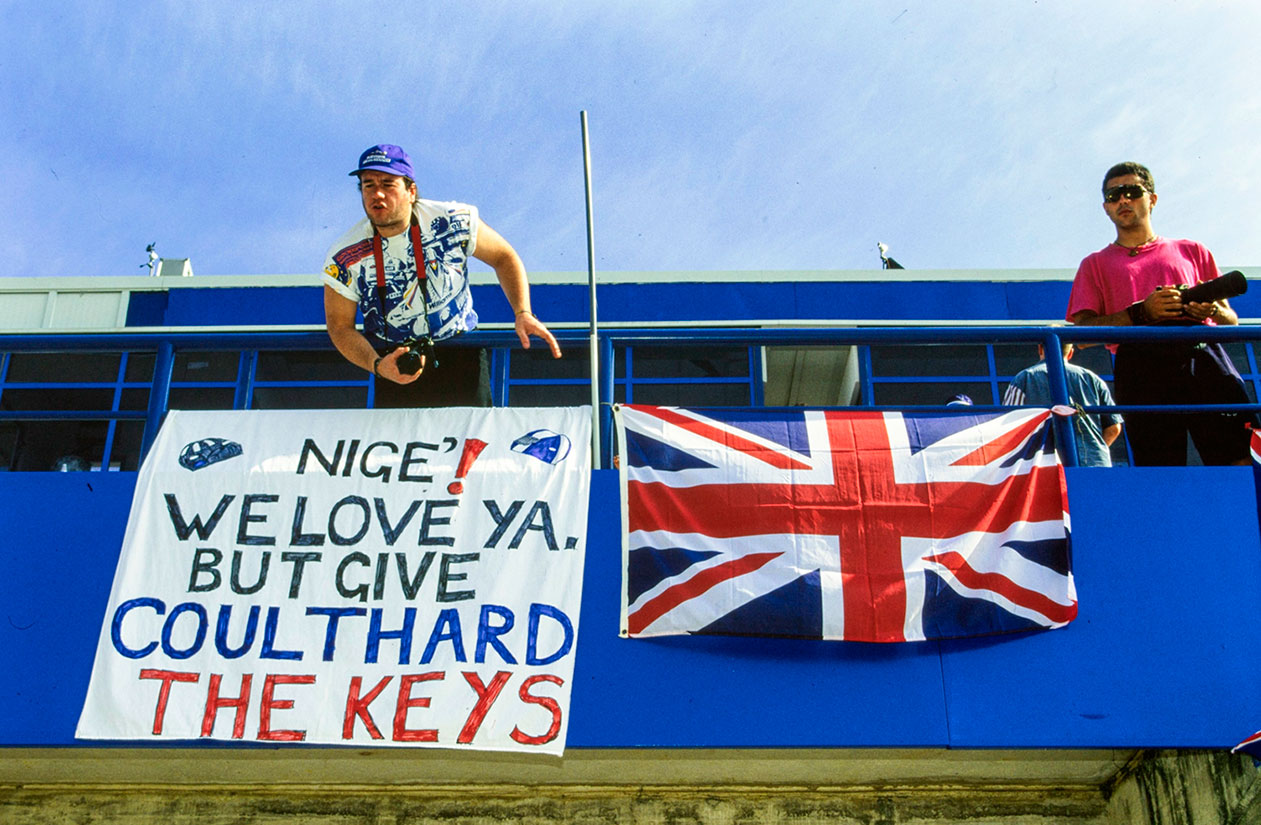 NIGE'!
WE LOVE YA.
BUT GIVE
COULTHARD
THE KEYS